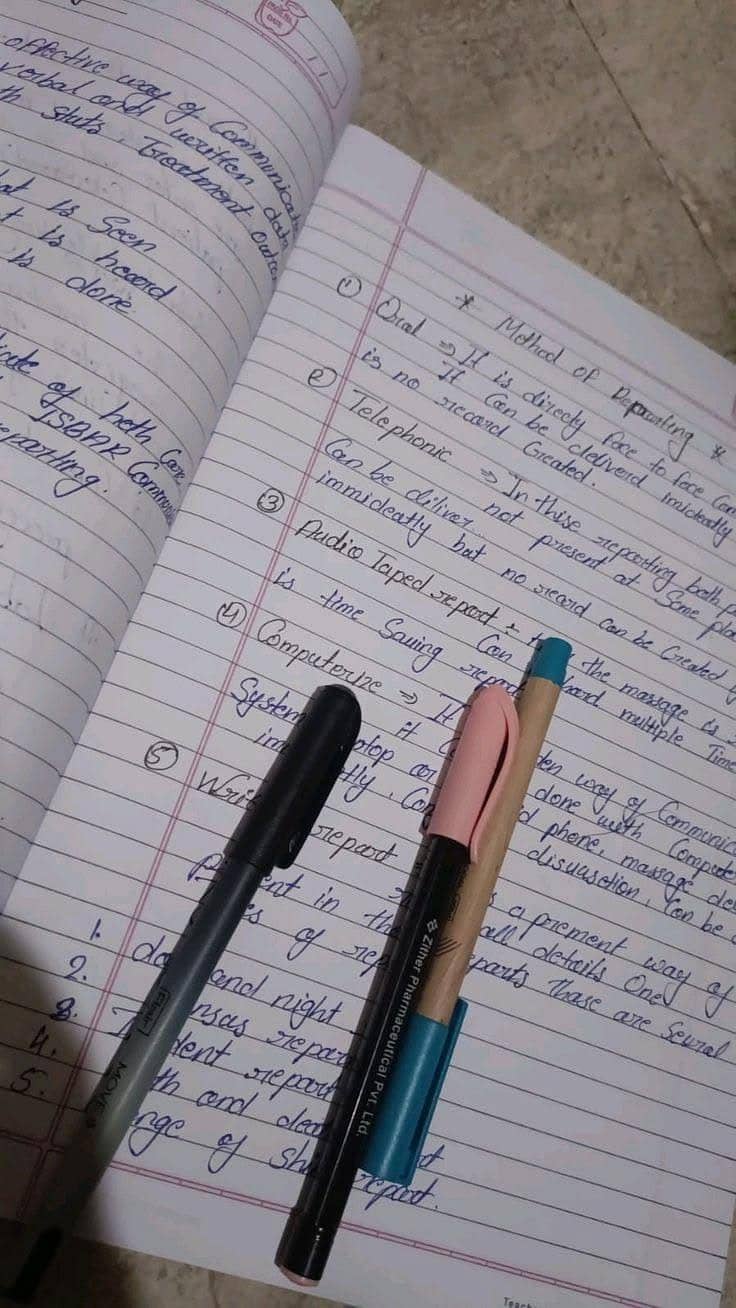 effective way of Communicat
verbal and written data
Treatment
at is Seen
t is heard
is done
of heth Care
ISBAR Commu
eporting.
* Method of Reporting *
① Oral ⇒ It is directly face to face Com
It Can be deliverd imidiatly
is no record Created.
② Telephonic ⇒ In thise reporting both p
not present at Same pla
Can be diliver
immideatly but no record can be Created
③ Audio Taped report ÷ the massage is
Can hard multiple Time
is time Saving repo
④ Computerize ⇒ It den way of Communic
it done with Compute
System top or d phone, massage del
im tly. Con disuasction. Can be
⑤ Wri report s a prement way of
P ent in the all details One
es of rep eports Thase are Sevral
1. da and night
2. nsas repor
3. I dent report
4. th and dea t
5. nge of Sh report.
Flair
MOVE
Zitner Pharmaceutical Pvt. Ltd.
Teach